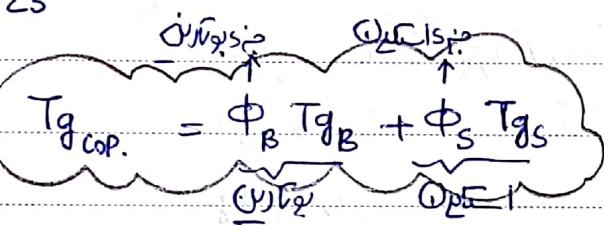 25
جزء بوتادین جزء استایرن
Tg cop. = Φ_B Tg_B + Φ_S Tg_S
بوتادین استایرن